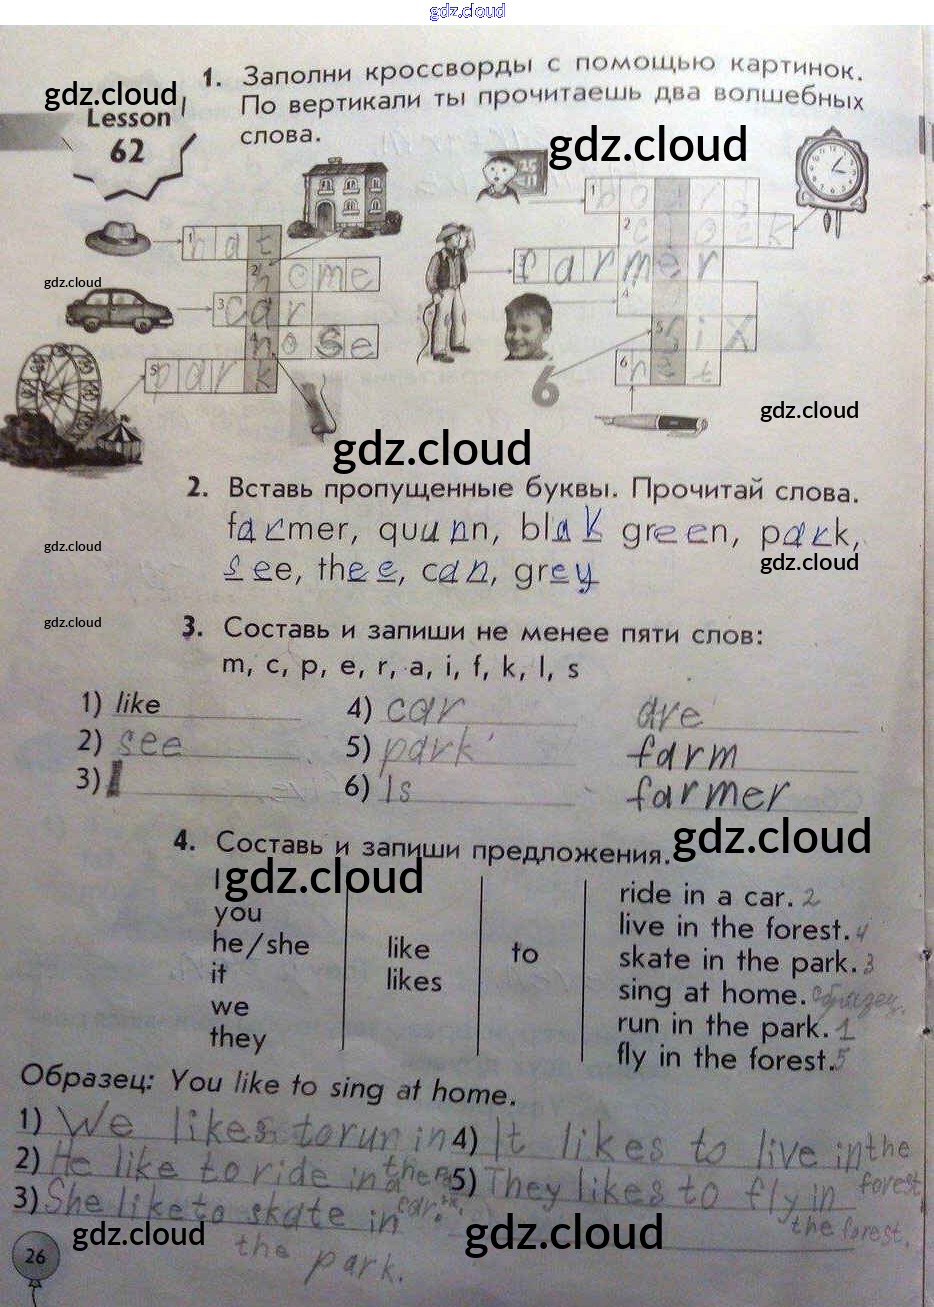 gdz.cloud
1. Заполни кроссворды с помощью картинок.
По вертикали ты прочитаешь два волшебных
слова.
gdz.cloud
Lesson
62
gdz.cloud
1 board
2 clock
1 hat
farmer
2 home
gdz.cloud
3 car
4
4 nose
5 six
5 park
6
6
gdz.cloud
gdz.cloud
2. Вставь пропущенные буквы. Прочитай слова.
farmer, quunn, blak green, park,
gdz.cloud
gdz.cloud
see, thee, can, grey
gdz.cloud
3. Составь и запиши не менее пяти слов:
m, c, p, e, r, a, i, f, k, l, s
1) like 4) car are
2) see 5) park farm
3) I 6) Is farmer
gdz.cloud
4. Составь и запиши предложения.
I
gdz.cloud
you
he/she
it
we
they
like
likes
to
ride in a car. 2
live in the forest. 4
skate in the park. 3
sing at home. Образец.
run in the park. 1
fly in the forest. 5
Образец: You like to sing at home.
1) We likes to run in
the park.
2) He like to ride in a
car.
3) She like to skate in
the park.
4) It likes to live in the
forest
5) They likes to fly in
the forest.
gdz.cloud
gdz.cloud
26